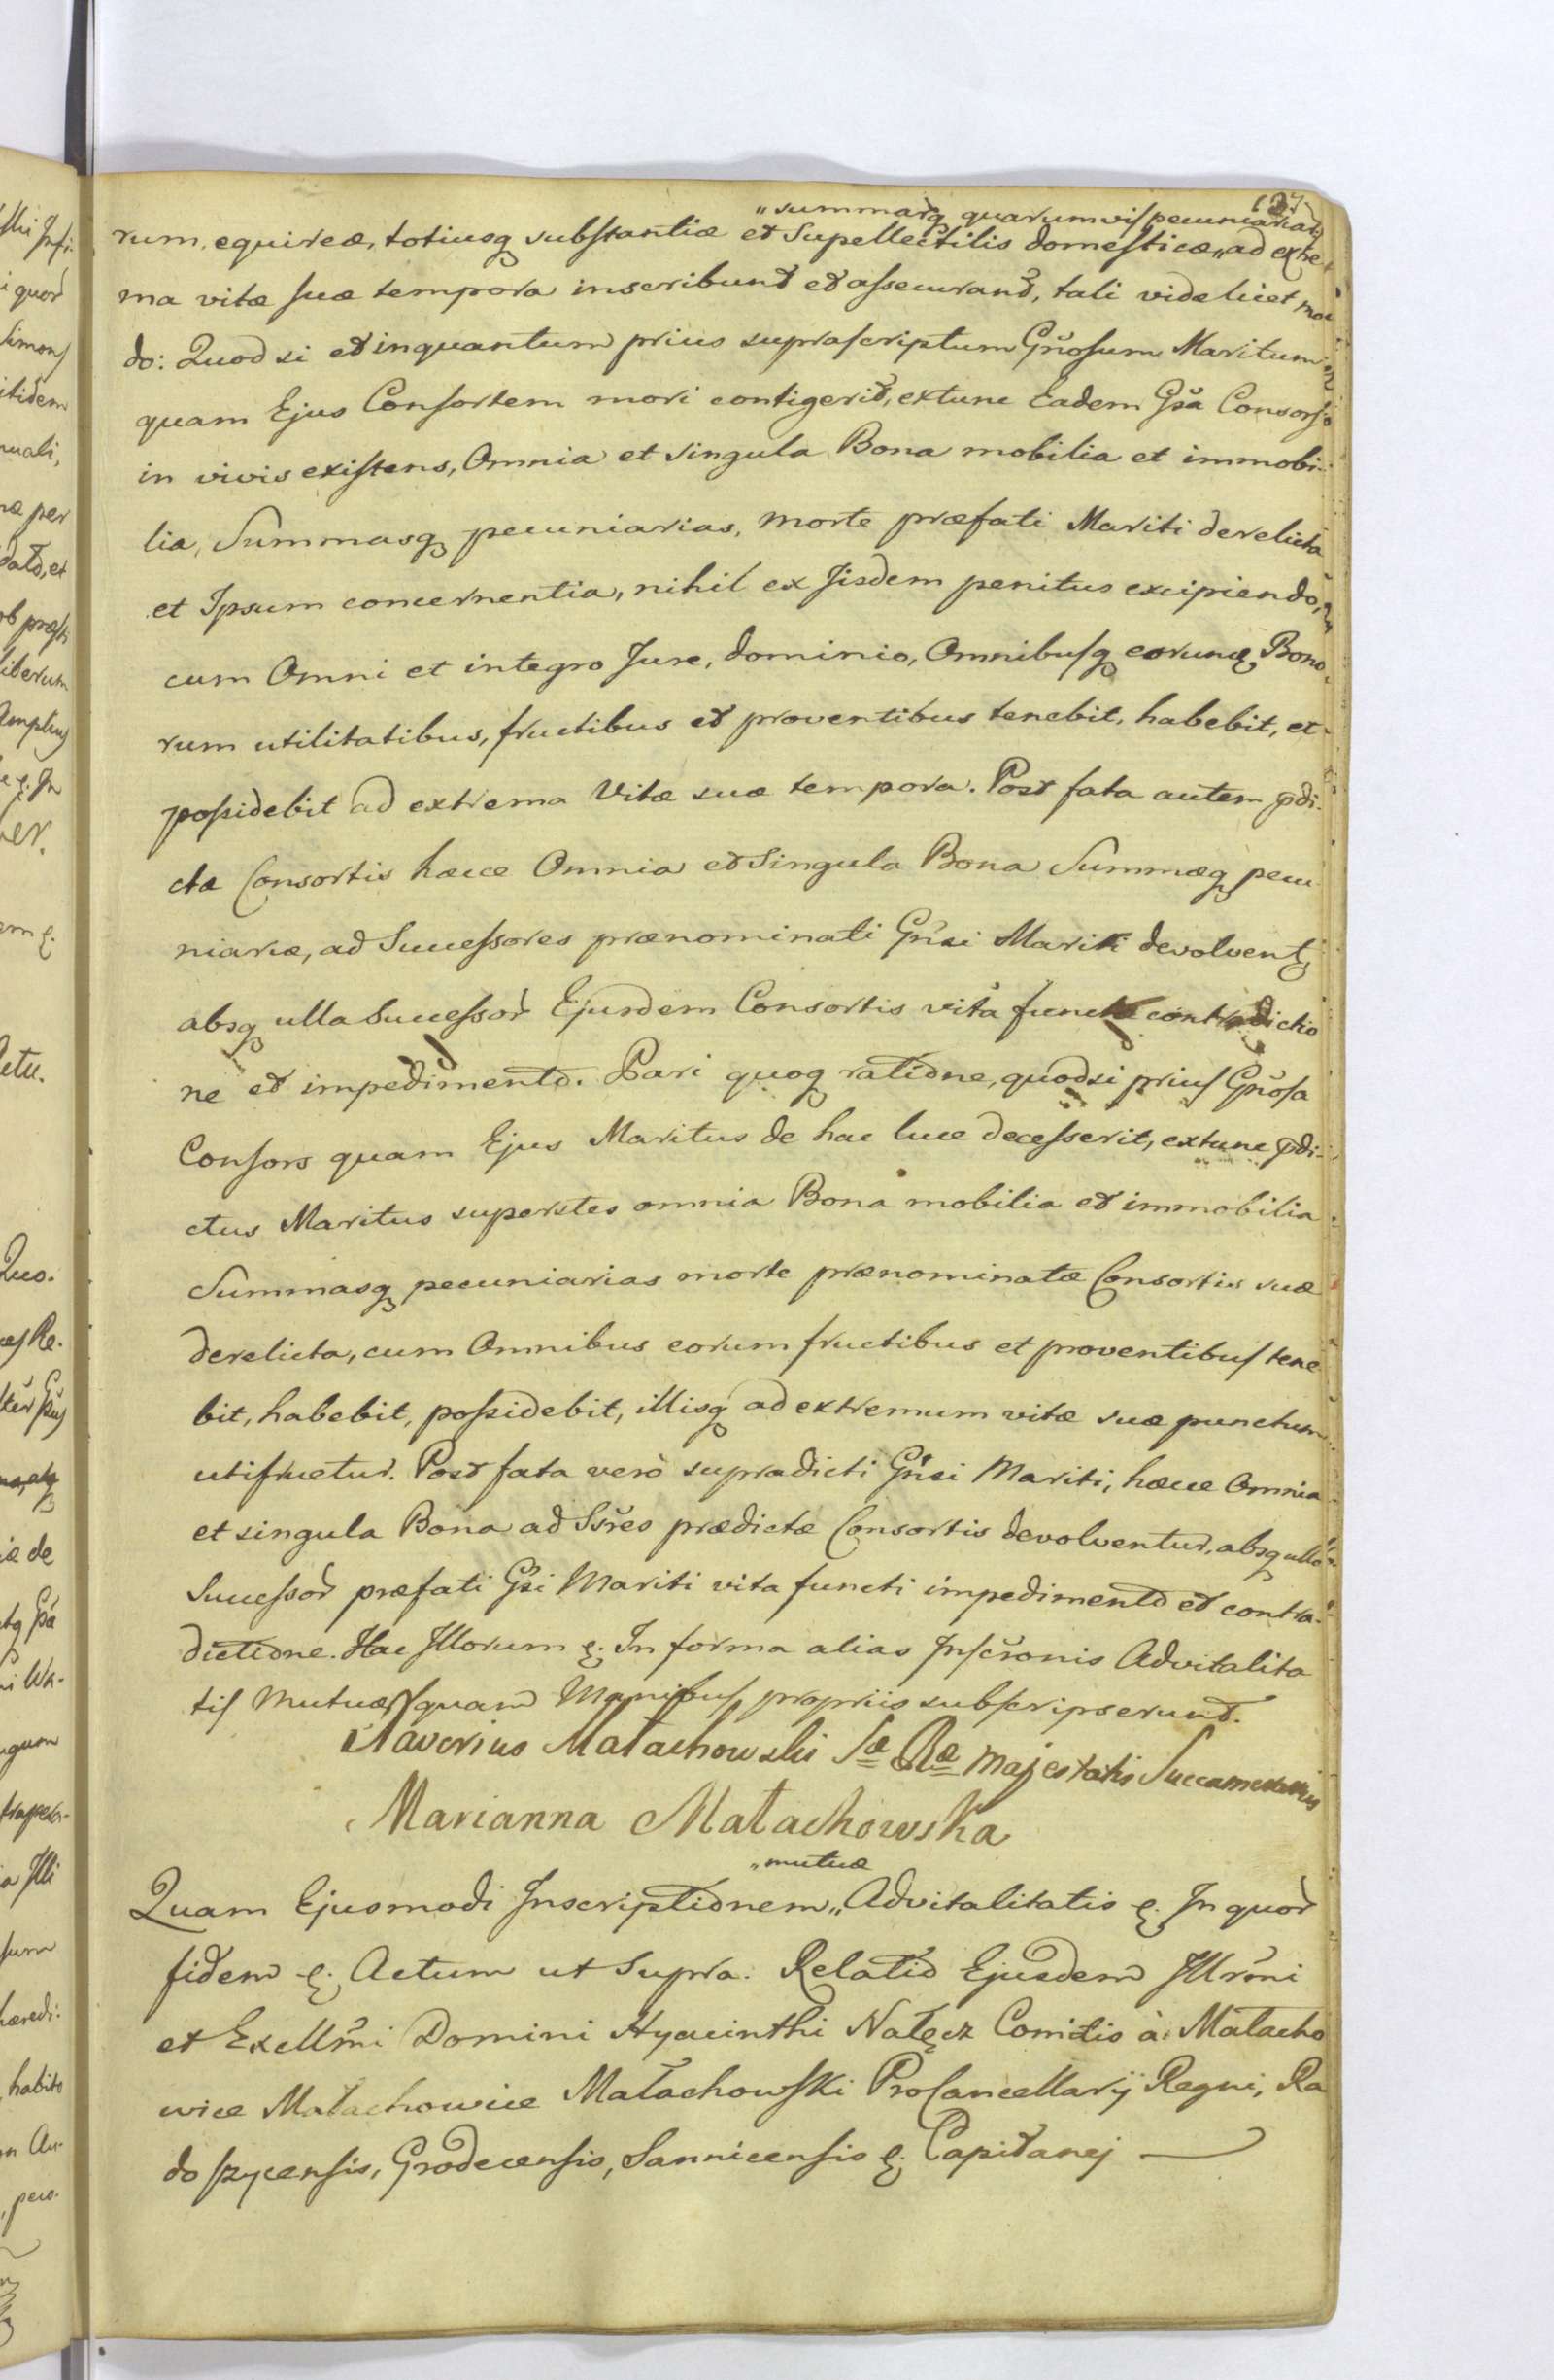 127
„summarq quarumvis pecuniariar
rum, equireæ, totiusq substantiæ et Supellectilis domesticæ„ ad extre
ma vitæ suæ tempora inscribunt et assecurant, tali videlicet mo
do: Quod si et inquantum prius suprascriptum Gñosum Maritum
quam Ejus Consortem mori contigerit, extunc Eadem Gsa Consors
in vivis existens, Omnia et singula Bona mobilia et immobi-
lia, Summasq pecuniarias, morte præfati Mariti derelicta
et Ipsum concernentia, nihil ex Jisdem penitus excipiendo,
cum Omni et integro Jure, dominio, Omnibusq eorunq Bono
rum utilitatibus, fructibus et proventibus tenebit, habebit, et
possidebit ad extrema Vitæ suæ tempora. Post fata autem pdi-
ctæ Consortis hæcce Omnia et Singula Bona Summæq pecu
niariæ, ad Successores prænominati Gñsi Mariti devolvent
absq ulla Successor Ejusdem Consortis vitâ functæ contradictio
ne et impedimento. Pari quoq ratione, quodsi prius Gñosa
Consors quam Ejus Maritus de hac luce decesserit, extunc pdi-
ctus Maritus superstes omnia Bona mobilia et immobilia
Summasq pecuniarias morte prænominatæ Consortis suæ
derelicta, cum Omnibus eorum fructibus et proventibus tene
bit, habebit, possidebit, illisq ad extremum vitæ suæ punctum
utifruetur. Post fata verò supradicti Gñsi Mariti, hæcce Omnia
et singula Bona ad Ssres prædictæ Consortis devolventur, absq ullo
Successor præfati Gsi Mariti vita functi impedimento et contra-
dictione. Hac Jllorum ę. In forma alias Jnscronis Advitalita
tis Mutuæ quam Manibus propriis subscripserunt.
Xaverius Małachowski Sæ Ræ Majestatis Succamerarius
Marianna Małachowska
„mutuæ
Quam Ejusmodi Inscriptionem„ Advitalitatis ę. In quor
fidem ę. Actum ut Supra. Relatio Ejusdem Jllrmi
et Excllmi Domini Hyacinthi Nałęcz Comitis à Małacho
wice Małachowice Małachowski ProCancellarij Regni, Ra
doszycensis, Grodecensis, Sannicensis ę. Capitanej